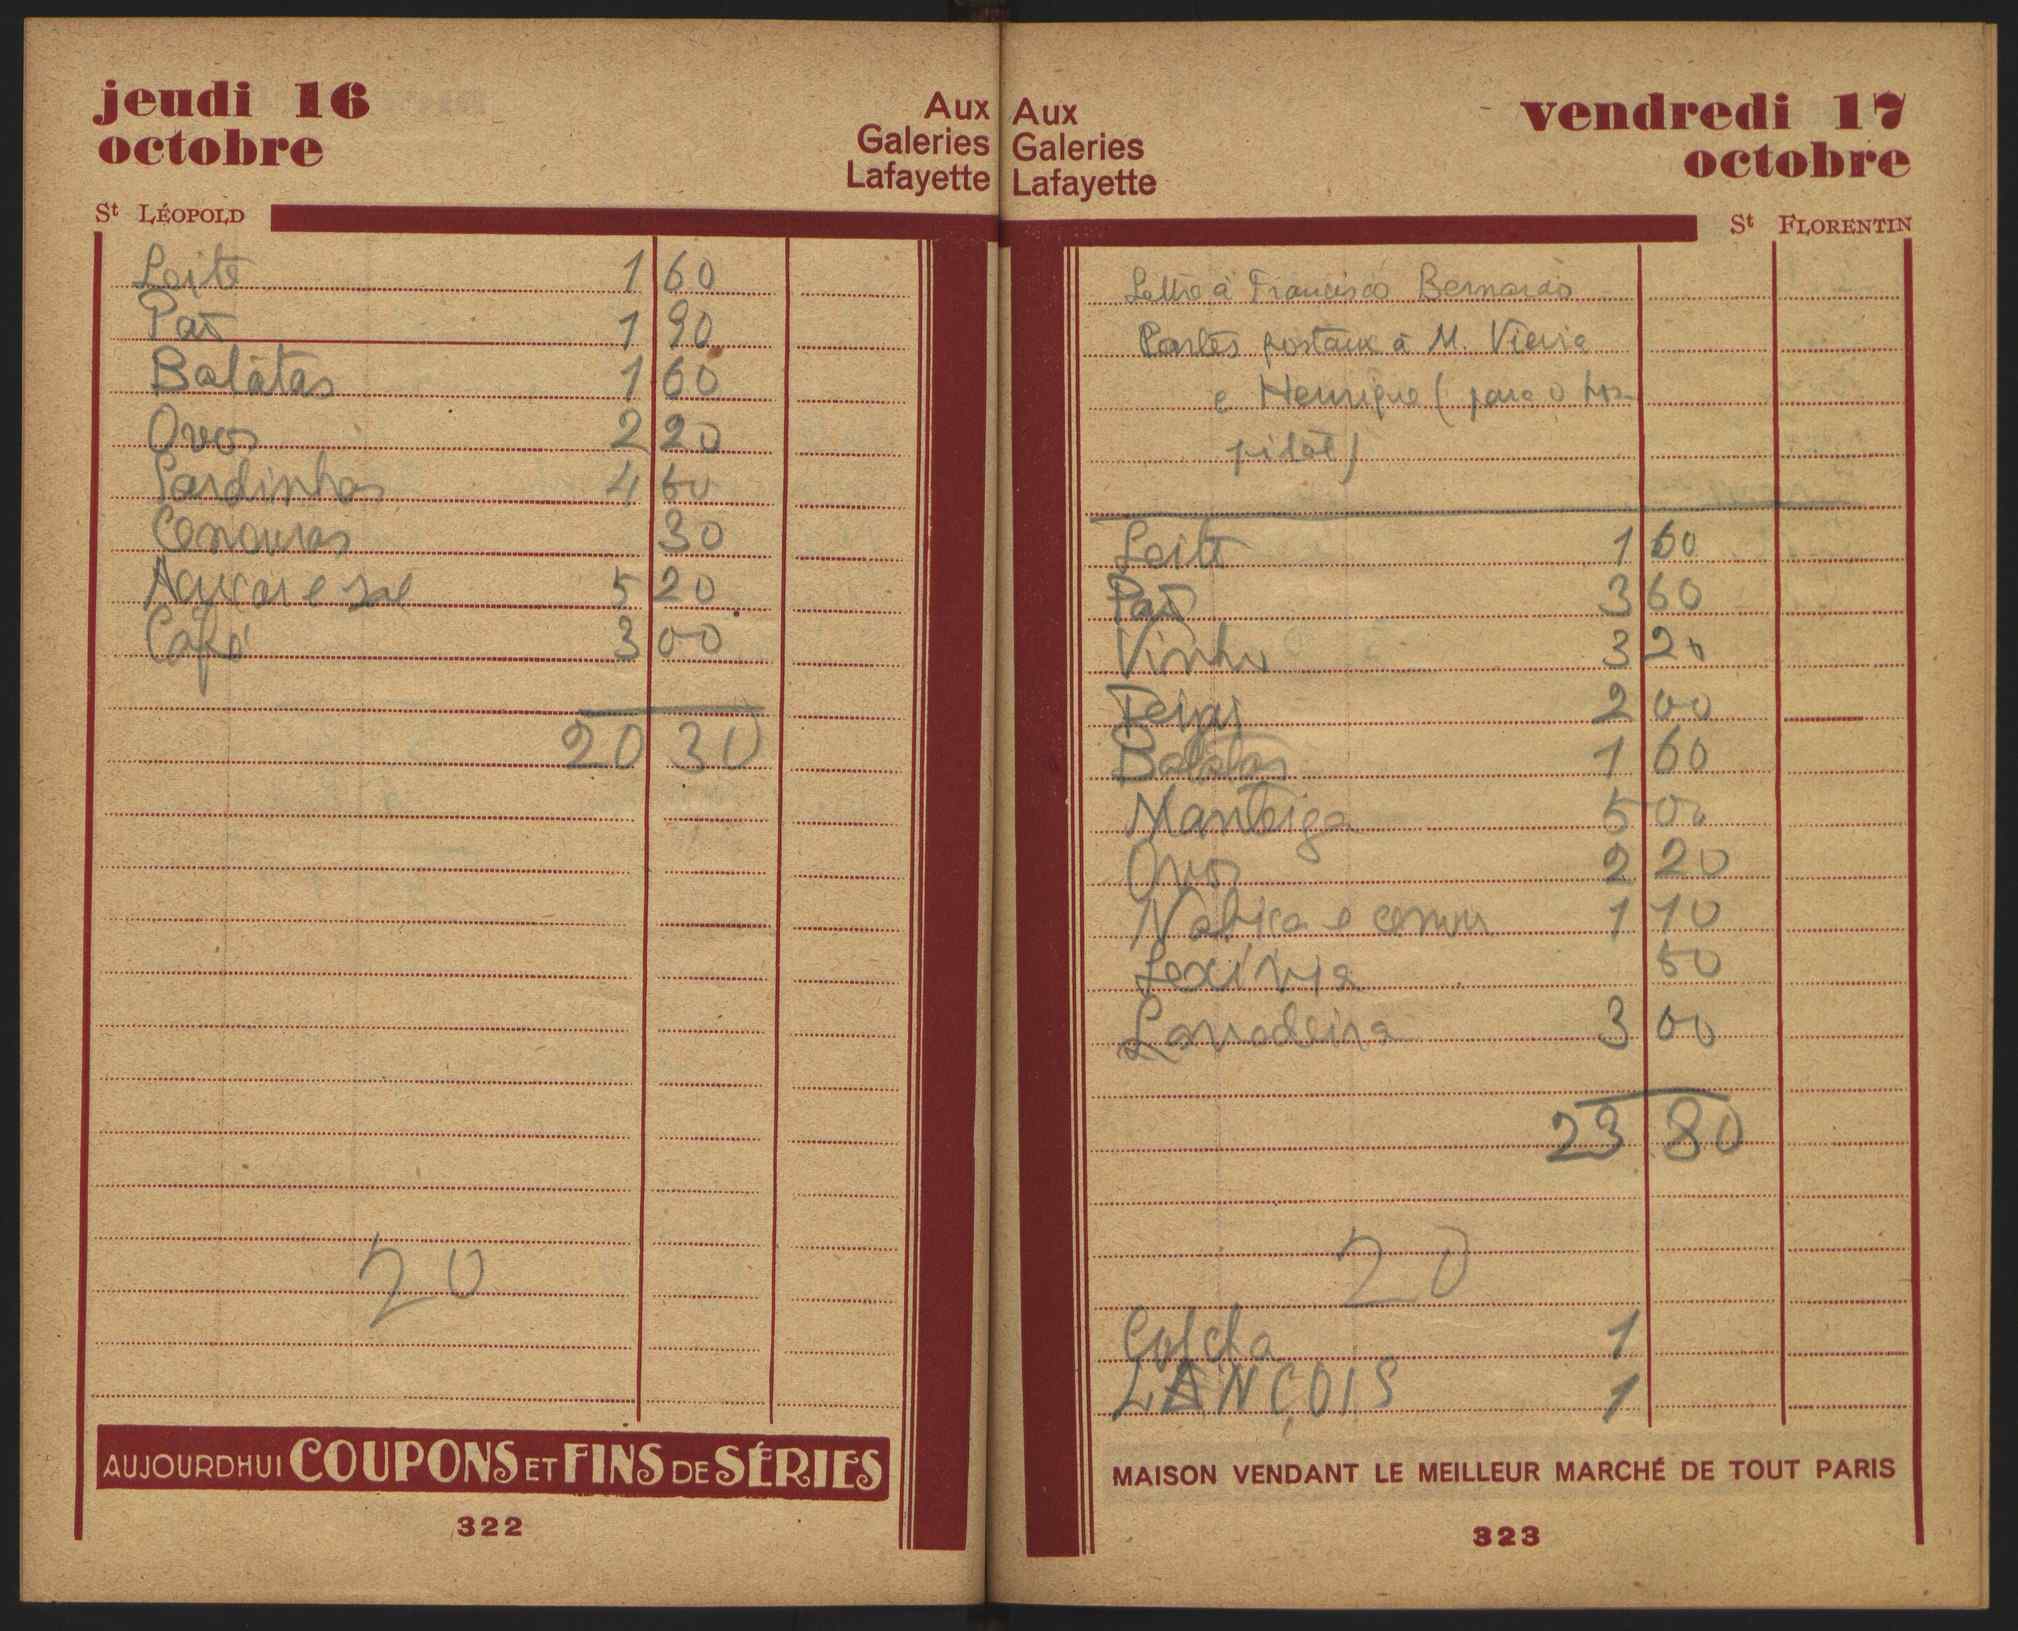 jeudi 16
octobre
Aux
Galeries
Lafayette
St LÉOPOLD
Leite 1 60
Pão 1 90
Batátas 1 60
Ovos 2 20
Sardinhas 4 50
Cenouras 30
Açucar e sal 5 20
Café 3 00
20 30
20
AUJOURDHUI COUPONS ET FINS DE SÉRIES
322
Aux
Galeries
Lafayette
vendredi 17
octobre
St FLORENTIN
Lettre à Francisco Bernardo
Cartes postaux à M. Vieira
e Henrique (para o hos-
pital)
Leite 1 60
Pão 3 60
Vinho 3 20
Peixe 2 00
Batatas 1 60
Manteiga 5 00
Ovos 2 20
Nabiça e cenou 1 10
Lexívia 50
Lavadeira 3 00
23 80
20
Colcha 1
LANÇOIS 1
MAISON VENDANT LE MEILLEUR MARCHÉ DE TOUT PARIS
323